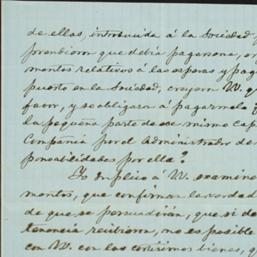 de ellas, introducida á la Sociedad,
que debia pagarsena, en
mentos relativos á las esposas y pag
puesto en la Sociedad, creyeron V. q
favor, y se obligaron á pagarmela
la pequeña parte de su mismo cap
Compañía por el Administrador de
ponsabilidades por ella?
Yo suplico á V. examinen
mentos, que confirman la verdad
de que se persuadirán, que si de
tenencia recibieron, no es posible
con V. con los cortísimos bienes, q